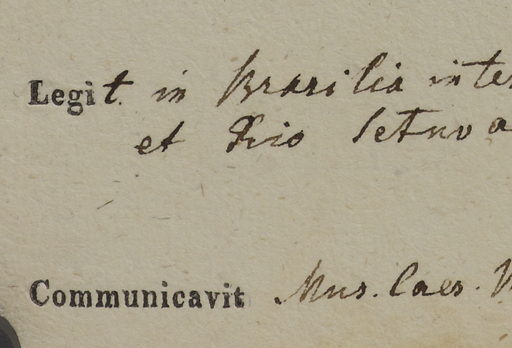 Legit in Brasilia inter
et Rio Setuva
Communicavit Mus. Caes.